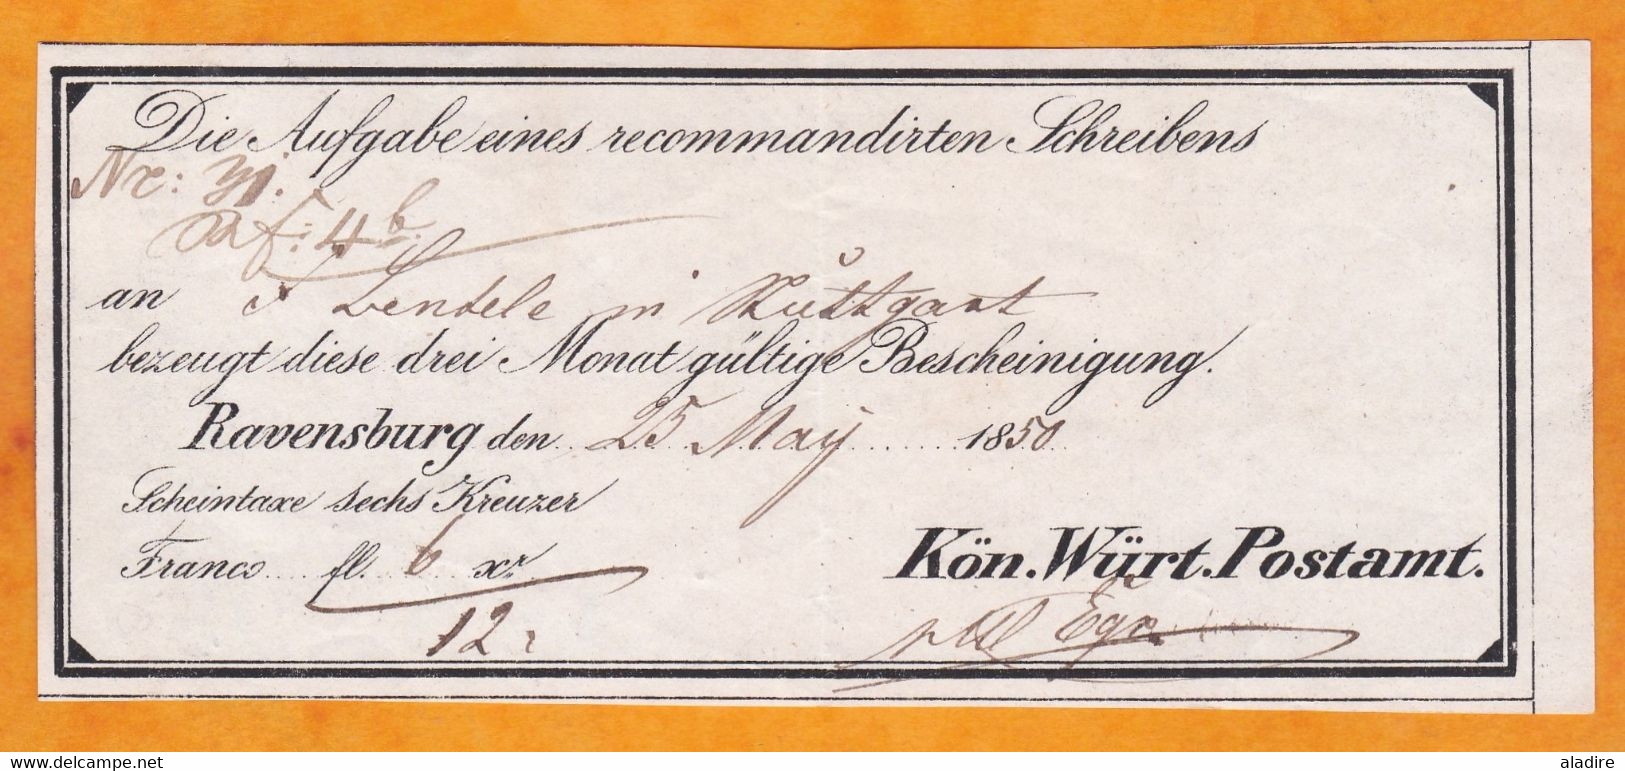 Die Aufgabe eines recommandirten Schreibens
Nr:
an Lendele in Stuttgart
bezeugt diese drei Monat gültige Bescheinigung.
Ravensburg den 25 May 1850
Scheintaxe sechs Kreuzer
Franco fl. 6 xr.
12
Kön. Würt. Postamt.
delcampe.net
aladire